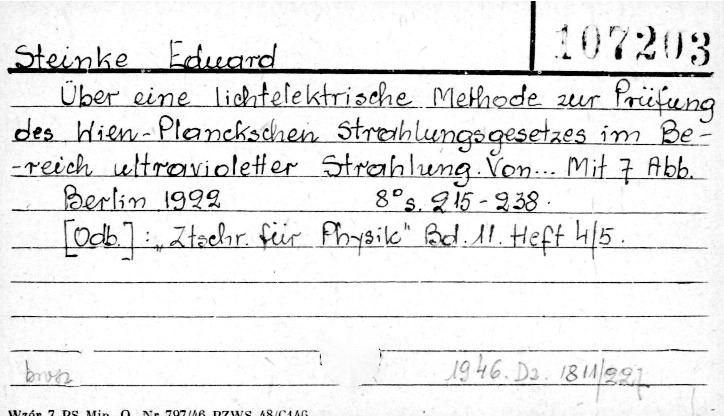 Steinke Eduard
107203
Über eine lichtelektrische Methode zur Prüfung
des Wien-Planckschen Strahlungsgesetzes im Be-
-reich ultravioletter Strahlung. Von... Mit 7 Abb.
Berlin 1922 8° s. 215-238.
[Odb.]: „Ztschr. für Physik" Bd. 11. Heft 4/5.
brosz 1946. Dz. 1811/227
Wzór 7 PS Min. O. Nr 797/46 PZWS